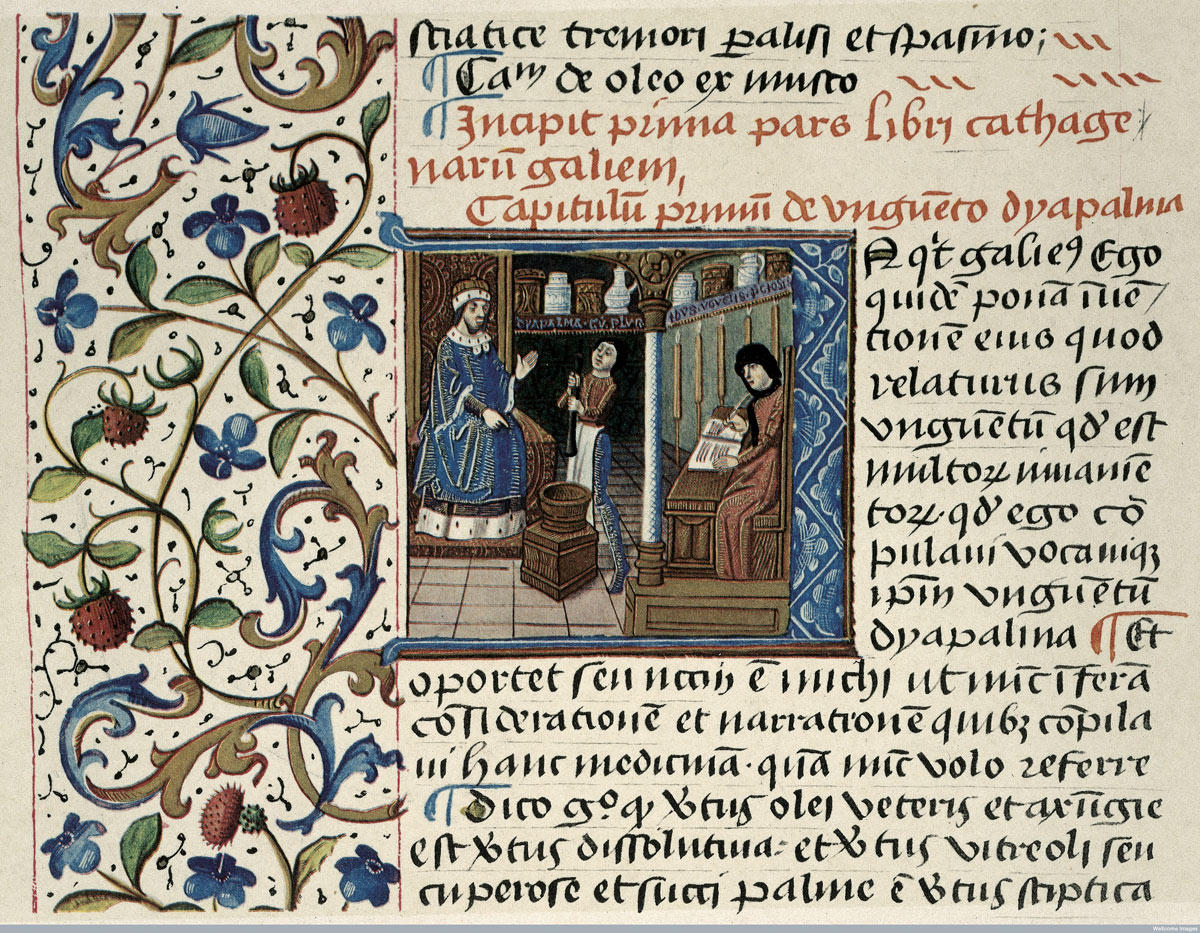 sciatice tremori ꝑalisi et spasmo;
¶ Cam de oleo ex musto
¶ Incipit prima pars libri cathage
narū galieni,
Capitulū primū de vnguēto dyapalma
DYAPALMA
galieꝰ Ego
quidē ponā īuē
tionē eius quod
relaturus sum
vnguētū qd̄ est
multoꝝ iuuamē
toꝝ. qd̄ ego cō
pilaui vocauiqꝫ
ip̄m vnguētū
dyapalma ¶ Et
oportet seu ē michi ut nūc īferā
cōsiderationē et narrationē quibꝫ cōpila
ui hanc medicinā. quā nūc volo referre
¶ Dico gͦ. ꝙ v̓tus olei veteris et axūgie
est v̓tus dissolutiua. et v̓tus vitreoli seu
cuperose et succi palme ē v̓tus stiptica
Wellcome Images